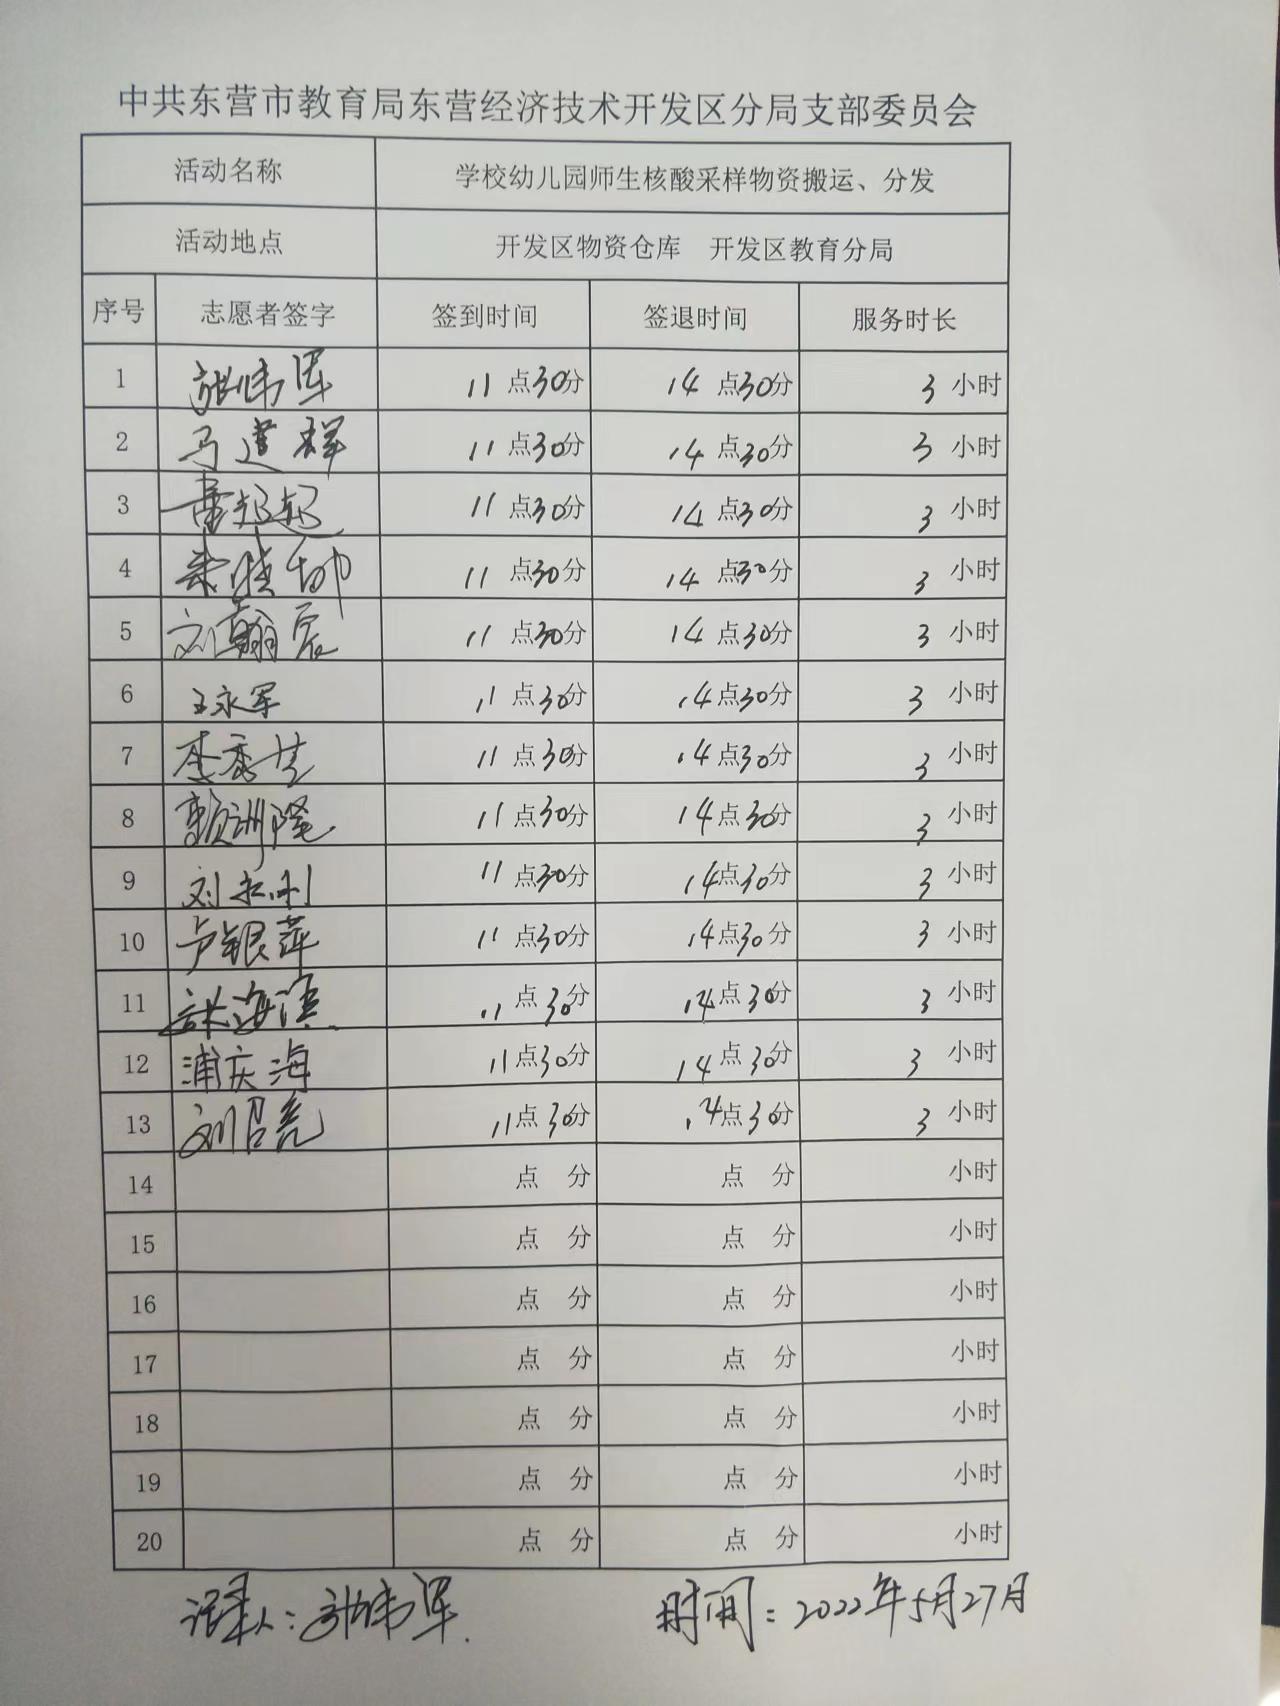 中共东营市教育局东营经济技术开发区分局支部委员会
活动名称 学校幼儿园师生核酸采样物资搬运、分发
活动地点 开发区物资仓库 开发区教育分局
序号 志愿者签字 签到时间 签退时间 服务时长
1 张伟军 11点30分 14点30分 3小时
2 马建群 11点30分 14点30分 3小时
3 11点30分 14点30分 3小时
4 11点30分 14点30分 3小时
5 刘翰宸 11点30分 14点30分 3小时
6 王永军 11点30分 14点30分 3小时
7 李秀芸 11点30分 14点30分 3小时
8 赖洲隆 11点30分 14点30分 3小时
9 刘 11点30分 14点30分 3小时
10 卢银萍 11点30分 14点30分 3小时
11 海滨 11点30分 14点30分 3小时
12 浦庆海 11点30分 14点30分 3小时
13 刘召亮 11点30分 14点30分 3小时
14 点 分 点 分 小时
15 点 分 点 分 小时
16 点 分 点 分 小时
17 点 分 点 分 小时
18 点 分 点 分 小时
19 点 分 点 分 小时
20 点 分 点 分 小时
记录人：张伟军 时间：2022年5月27月